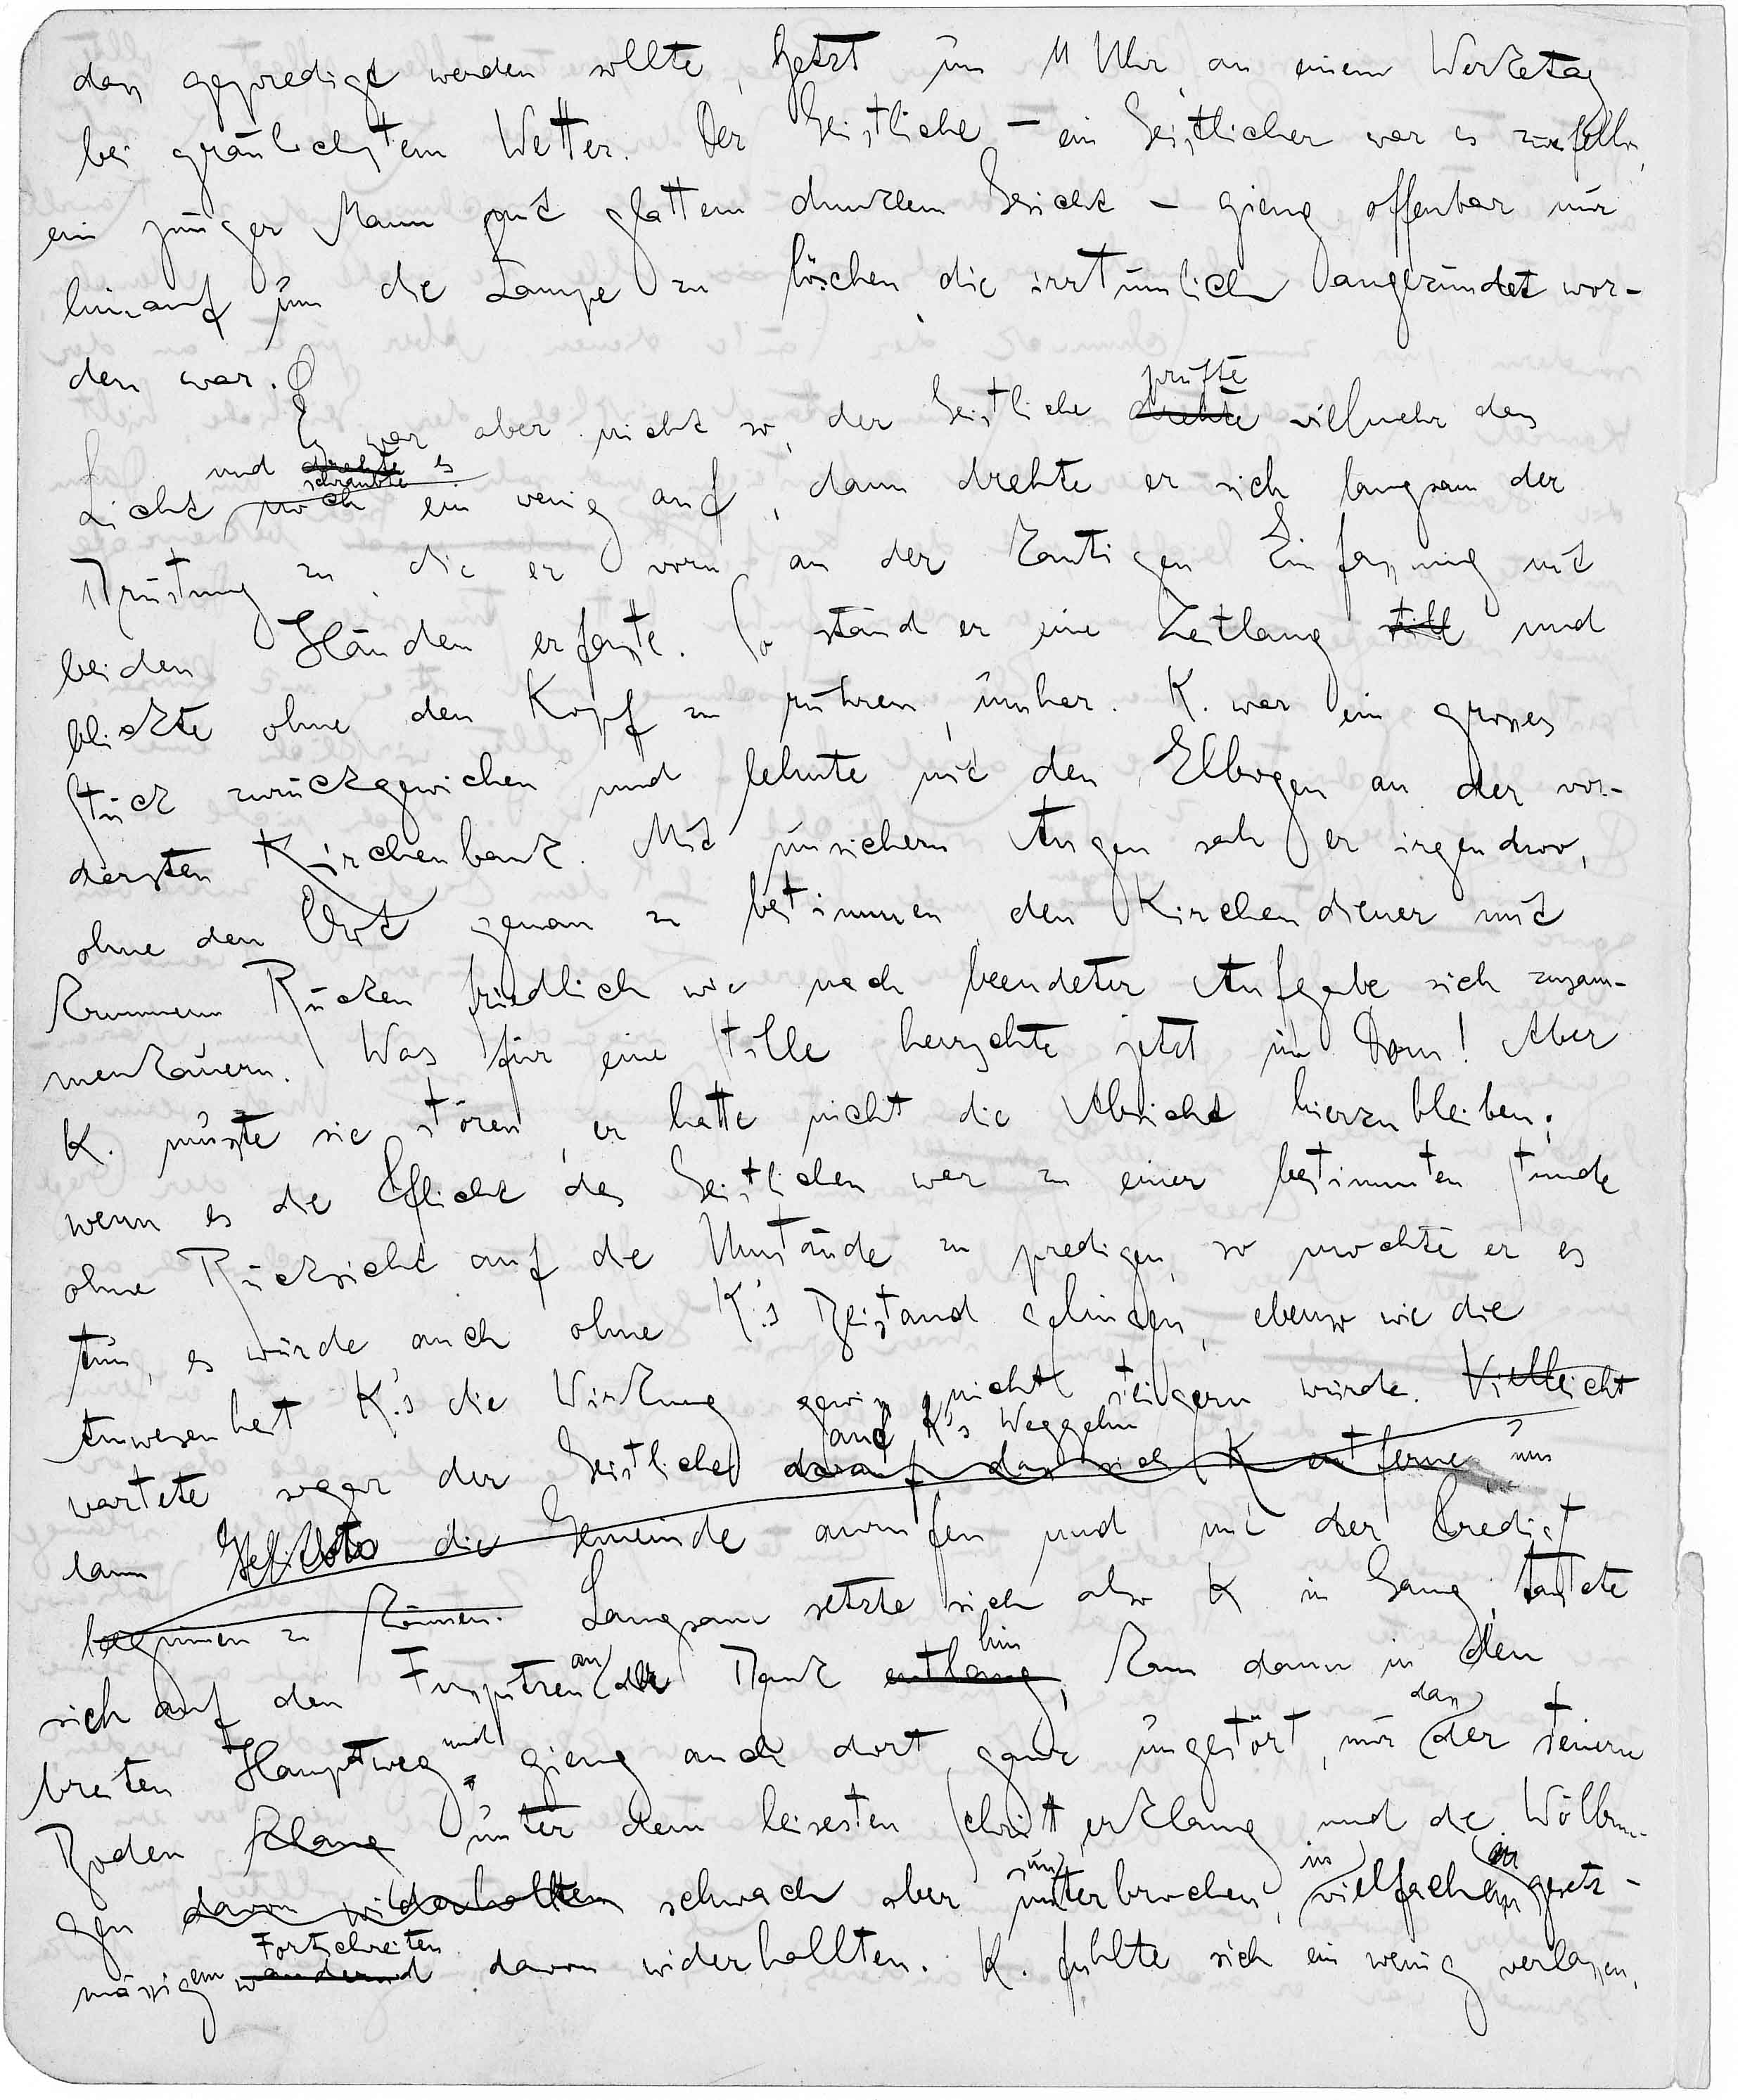 dass gepredigt werden sollte, jetzt um 11 Uhr an einem Werketag
bei gräulichstem Wetter. Der Geistliche – ein Geistlicher war es zweifellos,
ein junger Mann mit glattem dunklem Gesicht – gieng offenbar nur
hinauf um die Lampe zu löschen, die irrtümlich angezündet wor-
den war.
prüfte
Es war aber nicht so, der Geistliche drehte vielmehr das
und drehte es
schraubte
Licht noch ein wenig auf, dann drehte er sich langsam der
Brüstung zu, die er vorn an der kantigen Einfassung mit
beiden Händen erfasste. So stand er eine Zeitlang still und
blickte ohne den Kopf zu rühren, umher. K. war ein grosses
Stück zurückgewichen und lehnte mit den Elbogen an der vor-
dersten Kirchenbank. Mit unsichern Augen sah er irgendwo,
ohne den Ort genau zu bestimmen, den Kirchendiener mit
krummem Rücken friedlich wie nach beendeter Aufgabe sich zusam-
menkauern. Was für eine Stille herrschte jetzt im Dom! Aber
K. musste sie stören, er hatte nicht die Absicht hierzubleiben;
wenn es die Pflicht des Geistlichen war zu einer bestimmten Stunde
ohne Rücksicht auf die Umstände zu predigen, so mochte er es
tun, es würde auch ohne K.'s Beistand gelingen, ebenso wie die
Anwesenheit K.'s die Wirkung gewiss nicht steigern würde. Vielleicht
auf K's Weggehn
wartete sogar der Geistliche darauf dass sich K entferne um
dann die Gemeinde anrufen und mit der Predigt
beginnen zu können. Langsam setzte sich also K in Gang, tastete
an hin
sich auf den Fusspitzen der Bank entlang, kam dann in den
und dass
breiten Hauptweg gieng auch dort ganz ungestört, nur der steinerne
Boden klang unter dem leisesten Schritt erklang und die Wölbun-
un in
gen davon widerhallten schwach aber ununterbrochen, vielfachem gesetz-
Fortschreiten
mässigem wandernd davon widerhallten. K. fühlte sich ein wenig verlassen,